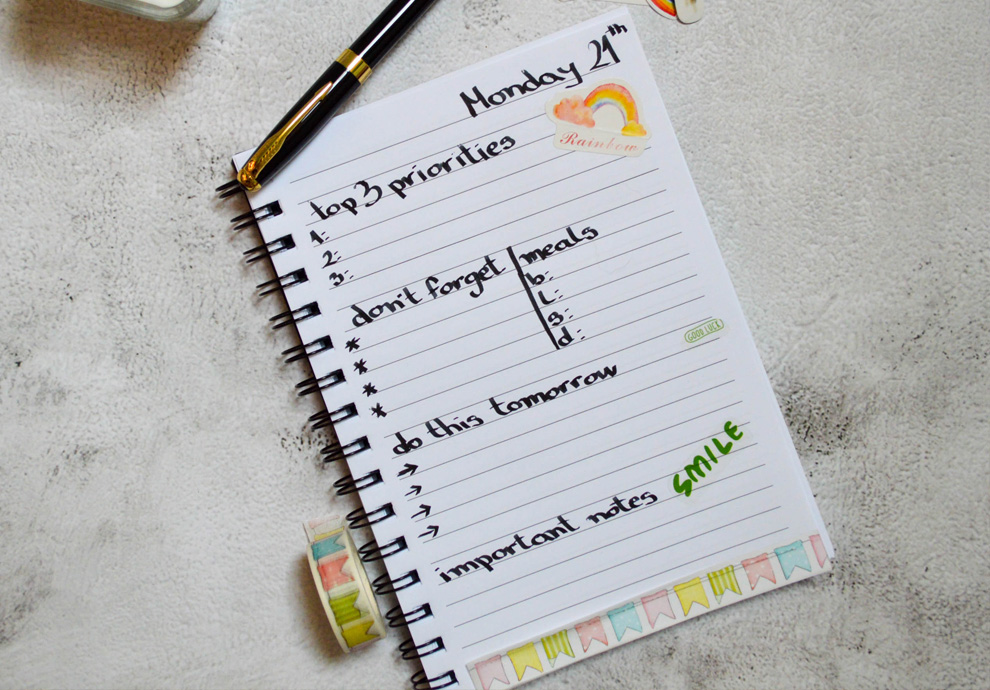 Monday 21th
Rainbow
top 3 priorities
1:
2:
3:
don't forget
*
*
*
*
meals
b:
L:
s:
d:
GOOD LUCK
do this tomorrow
→
→
→
→
SMILE
important notes